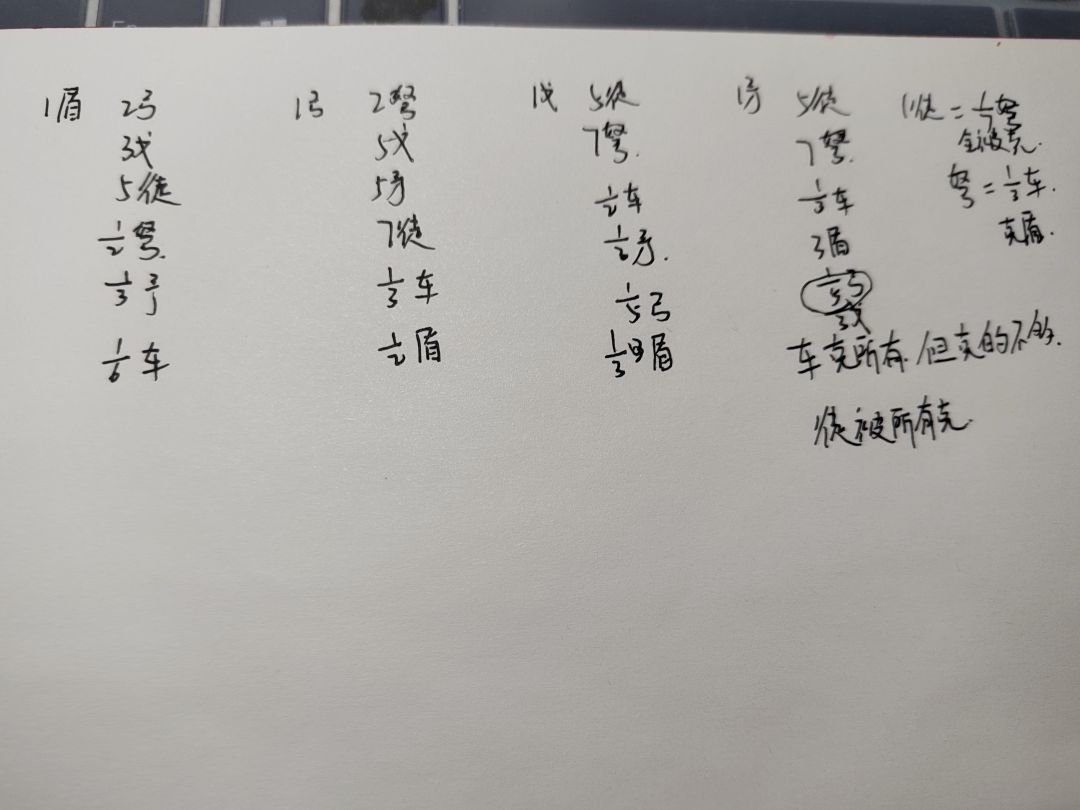 1盾 2弓
3戈
5徒
1/2弩.
1/3矛
1/6车
1弓 2弩
5戈
5矛
7徒
1/3车
1/2盾
1戈 5徒
7弩.
1/2车
1/2矛.
1/5弓
1/3盾
1矛 5徒
7弩.
1/3车
3盾
1/5弓
3戈
车克所有.但克的不多.
徒被所有克.
1徒=1/7弩
全被克.
弩=1/3车.
克盾.